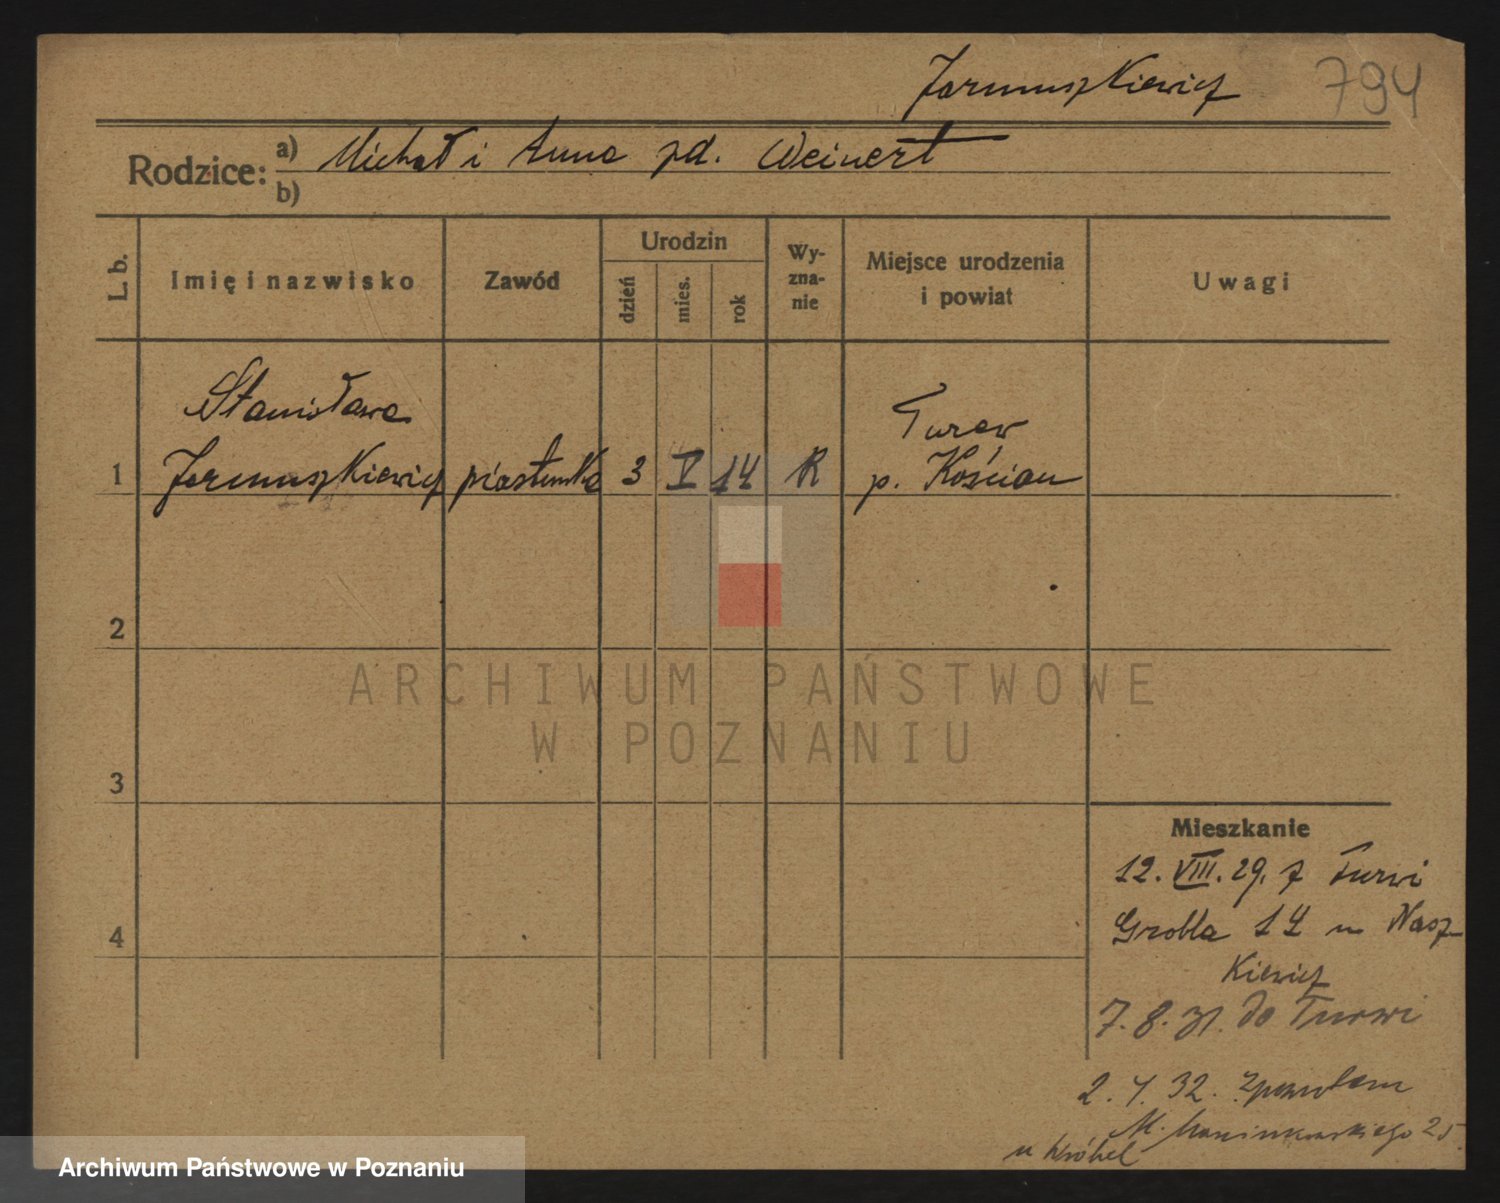 Jarmuszkiewicz 794
Rodzice: a) Michał i Anna zd. Weinert
b)
L. b. Imię i nazwisko Zawód Urodzin dzień mies. rok Wyzna-nie Miejsce urodzenia i powiat Uwagi
Stanisława
Jarmuszkiewicz
1 piastunka 3 V 14 R Turew
p. Kościan
2
3
4
ARCHIWUM PAŃSTWOWE
W POZNANIU
Mieszkanie
12. VIII. 29. z Turwi
Grobla 14 u Nasz-
kiewicz
7. 8. 31. do Turwi
2. 4. 32. z powrotem
M. Marcinkowskiego 25
u Króhel
Archiwum Państwowe w Poznaniu